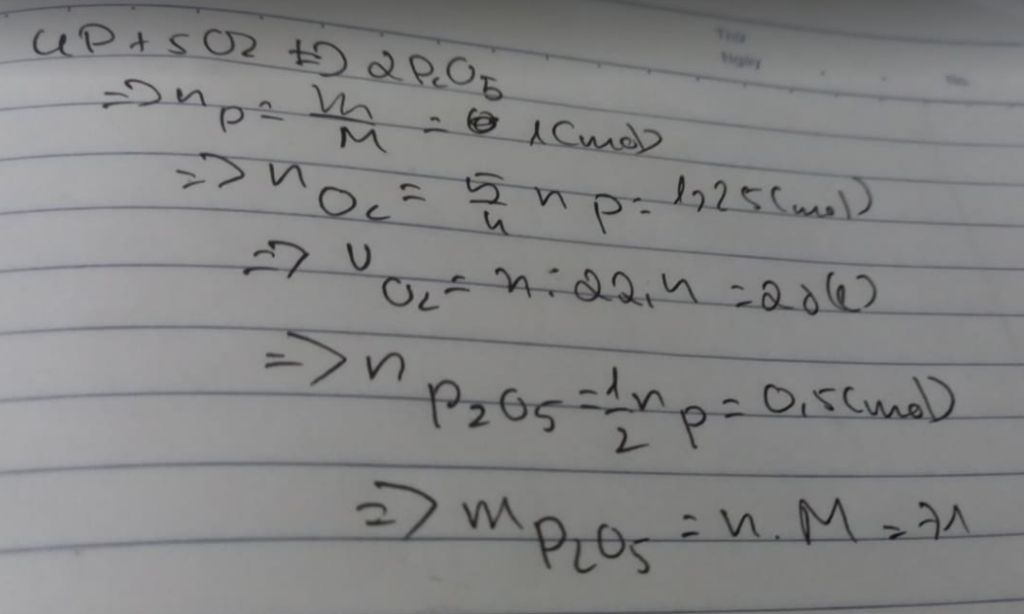 4P + 5O2 t°→ 2P2O5
=> nP = m/M = 1(mol)
=> nO2 = 5/4 nP = 1,25(mol)
=> VO2 = n . 22,4 = 28(l)
=> nP2O5 = 1/2 nP = 0,5(mol)
=> mP2O5 = n . M = 71